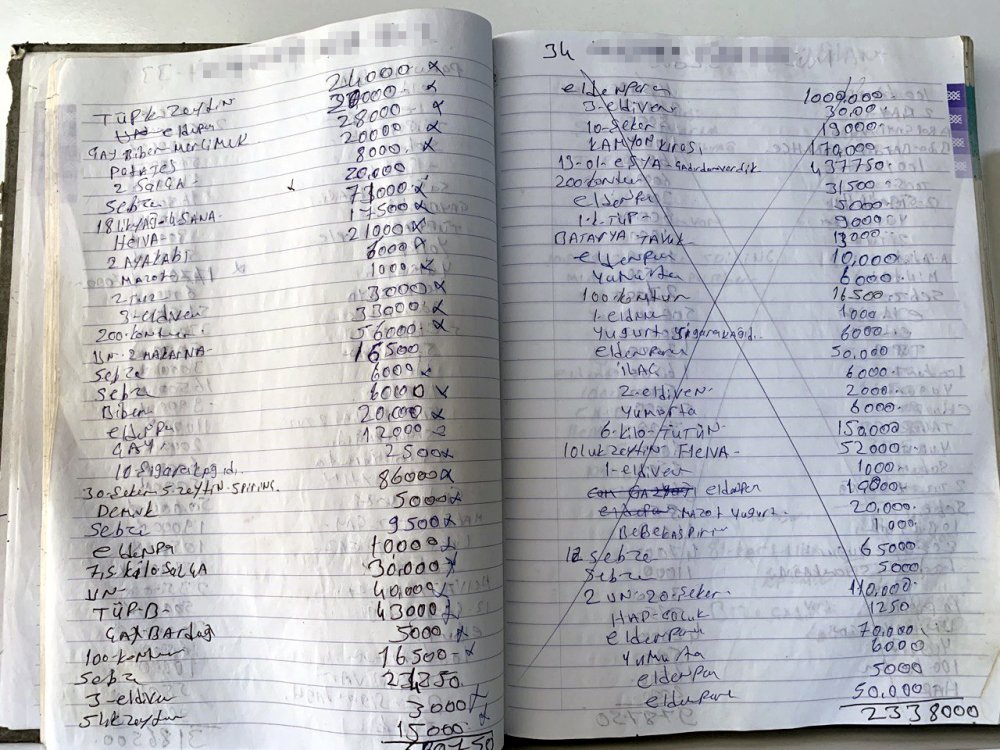 24000 x
TÜPK zeytin 30000 x
eldenpara 28000 x
ÇAY Biber Mercimek 20000 x
PatATes 8000 x
2 SALÇA 20,000
Sebze 73000 x
18likYAĞ-4 SANA 17500 x
HELVA 21000 x
2 AYAKABI 6000 x
Mazot 1000 x
3000 x
3-eldiven 33000 x
200-kontur 56000 x
UN-2 MAKARNA 16500
Sebze 6000 x
Sebze 6000 x
Biber 20,000 x
eldenpara 12000 x
ÇAY 2500 x
10-Sigarakağıdı
30-Şeker-5 zeytin-SPiRiNG. 86000 x
Demlik 5000 x
Sebze 9500 x
eldenpa 10000 x
7,5 kilo SALÇA 30,000 x
UN- 40,000 x
TÜP-B- 43000 x
ÇAY BArdağ 5000 x
100-kontur 16500-x
Sebze
3-eldiven 3000 x
5 lik zeytin 15000 x
34
eldenpara 1000,000
3-eldiven 30,00
10-Şeker 19,000
KAMYON Kirası 170,000
19-01-eŞYA- 437750
200 kontur 31500
eldenpara 5000
1-k-TÜP- 9000
BATARYA TAVUK
eldenpara 10,000
yumurta 6000
100-kontur 16500
1-eldiven 1000
yugurt Sigarakağıdı 6000
eldenpara 50,000
iLAÇ 6000
2-eldiven 2000
yumorta 6000
6-kilo-TÜTÜN 150,000
10luk zeytin HELVA- 52000
1-eldiven 1000
eldenpara 19000
Mazot yugurt. 20,000
BeBekaspirin 1,000
12 Sebze 65000
Sebze 5000
2 UN-20-Şeker 110,000
HAP-ÇOCUK 1250
eldenpara 70,000
yumurta 6000
eldenpara 5000
eldenpara 50,000
2338000